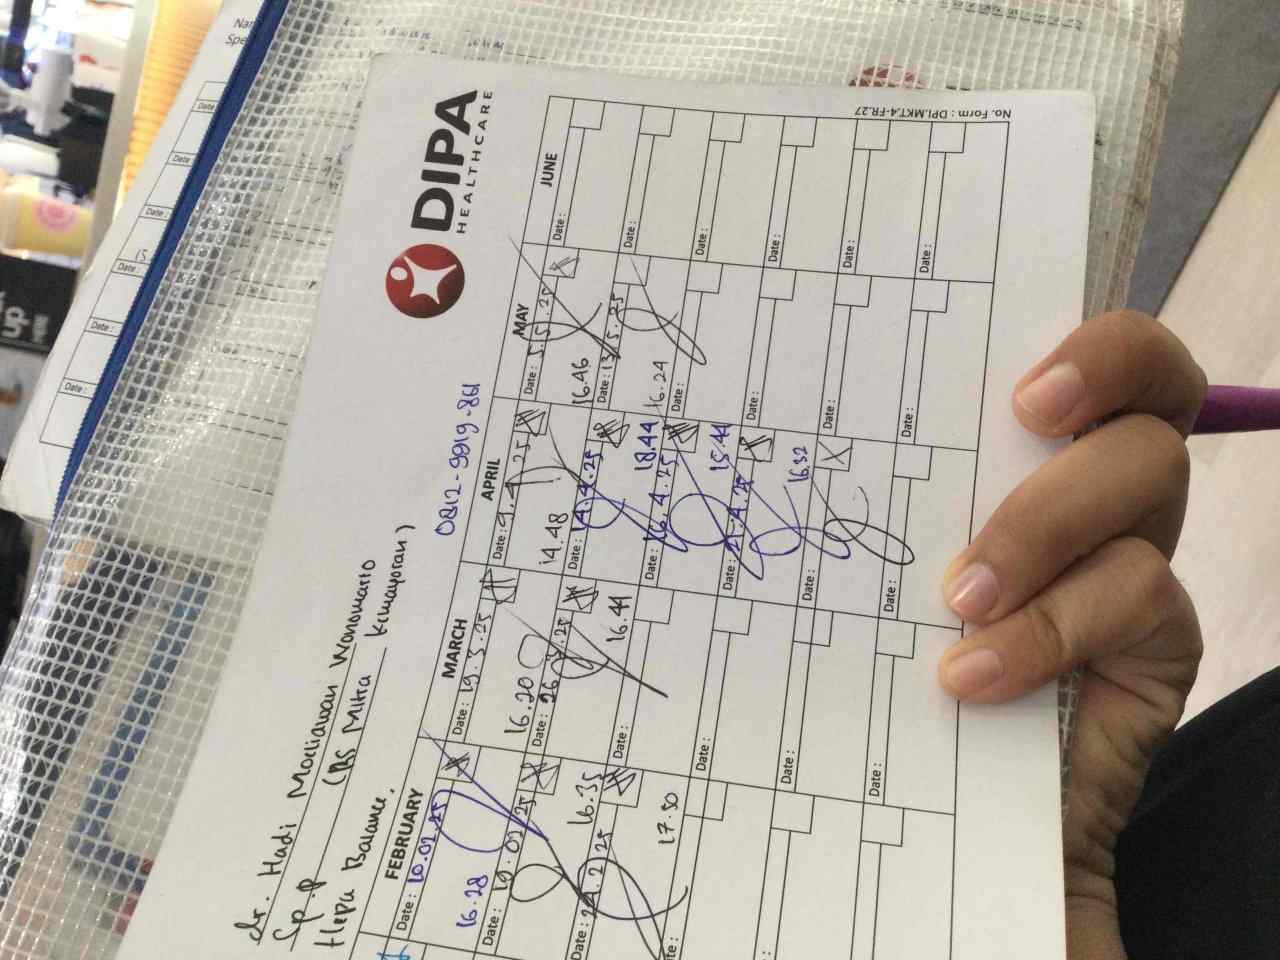 DIPA
HEALTHCARE
dr. Hadi Moeliawan Wonowarto
Sp.P (RS Mitra Kemayoran)
Hepa Balance,
0812-9919-861
FEBRUARY
Date : 10.02.25
16.28
Date : 19.02.25
16.35
Date : 24.2.25
17.50
MARCH
Date : 19.3.25
16.20
Date : 26.3.25
16.41
Date :
Date :
Date :
Date :
APRIL
Date : 9.4.25
14.48
Date : 14.4.25
18.44
Date : 16.4.25
15.41
Date : 21.4.25
16.32
Date :
Date :
MAY
Date : 5.5.25
16.46
Date : 13.5.25
16.24
Date :
Date :
Date :
Date :
JUNE
Date :
Date :
Date :
Date :
Date :
Date :
No. Form : DPI.MKT.4-FR.27
Date :
Date :
Date :
Date :
Date :
Date :